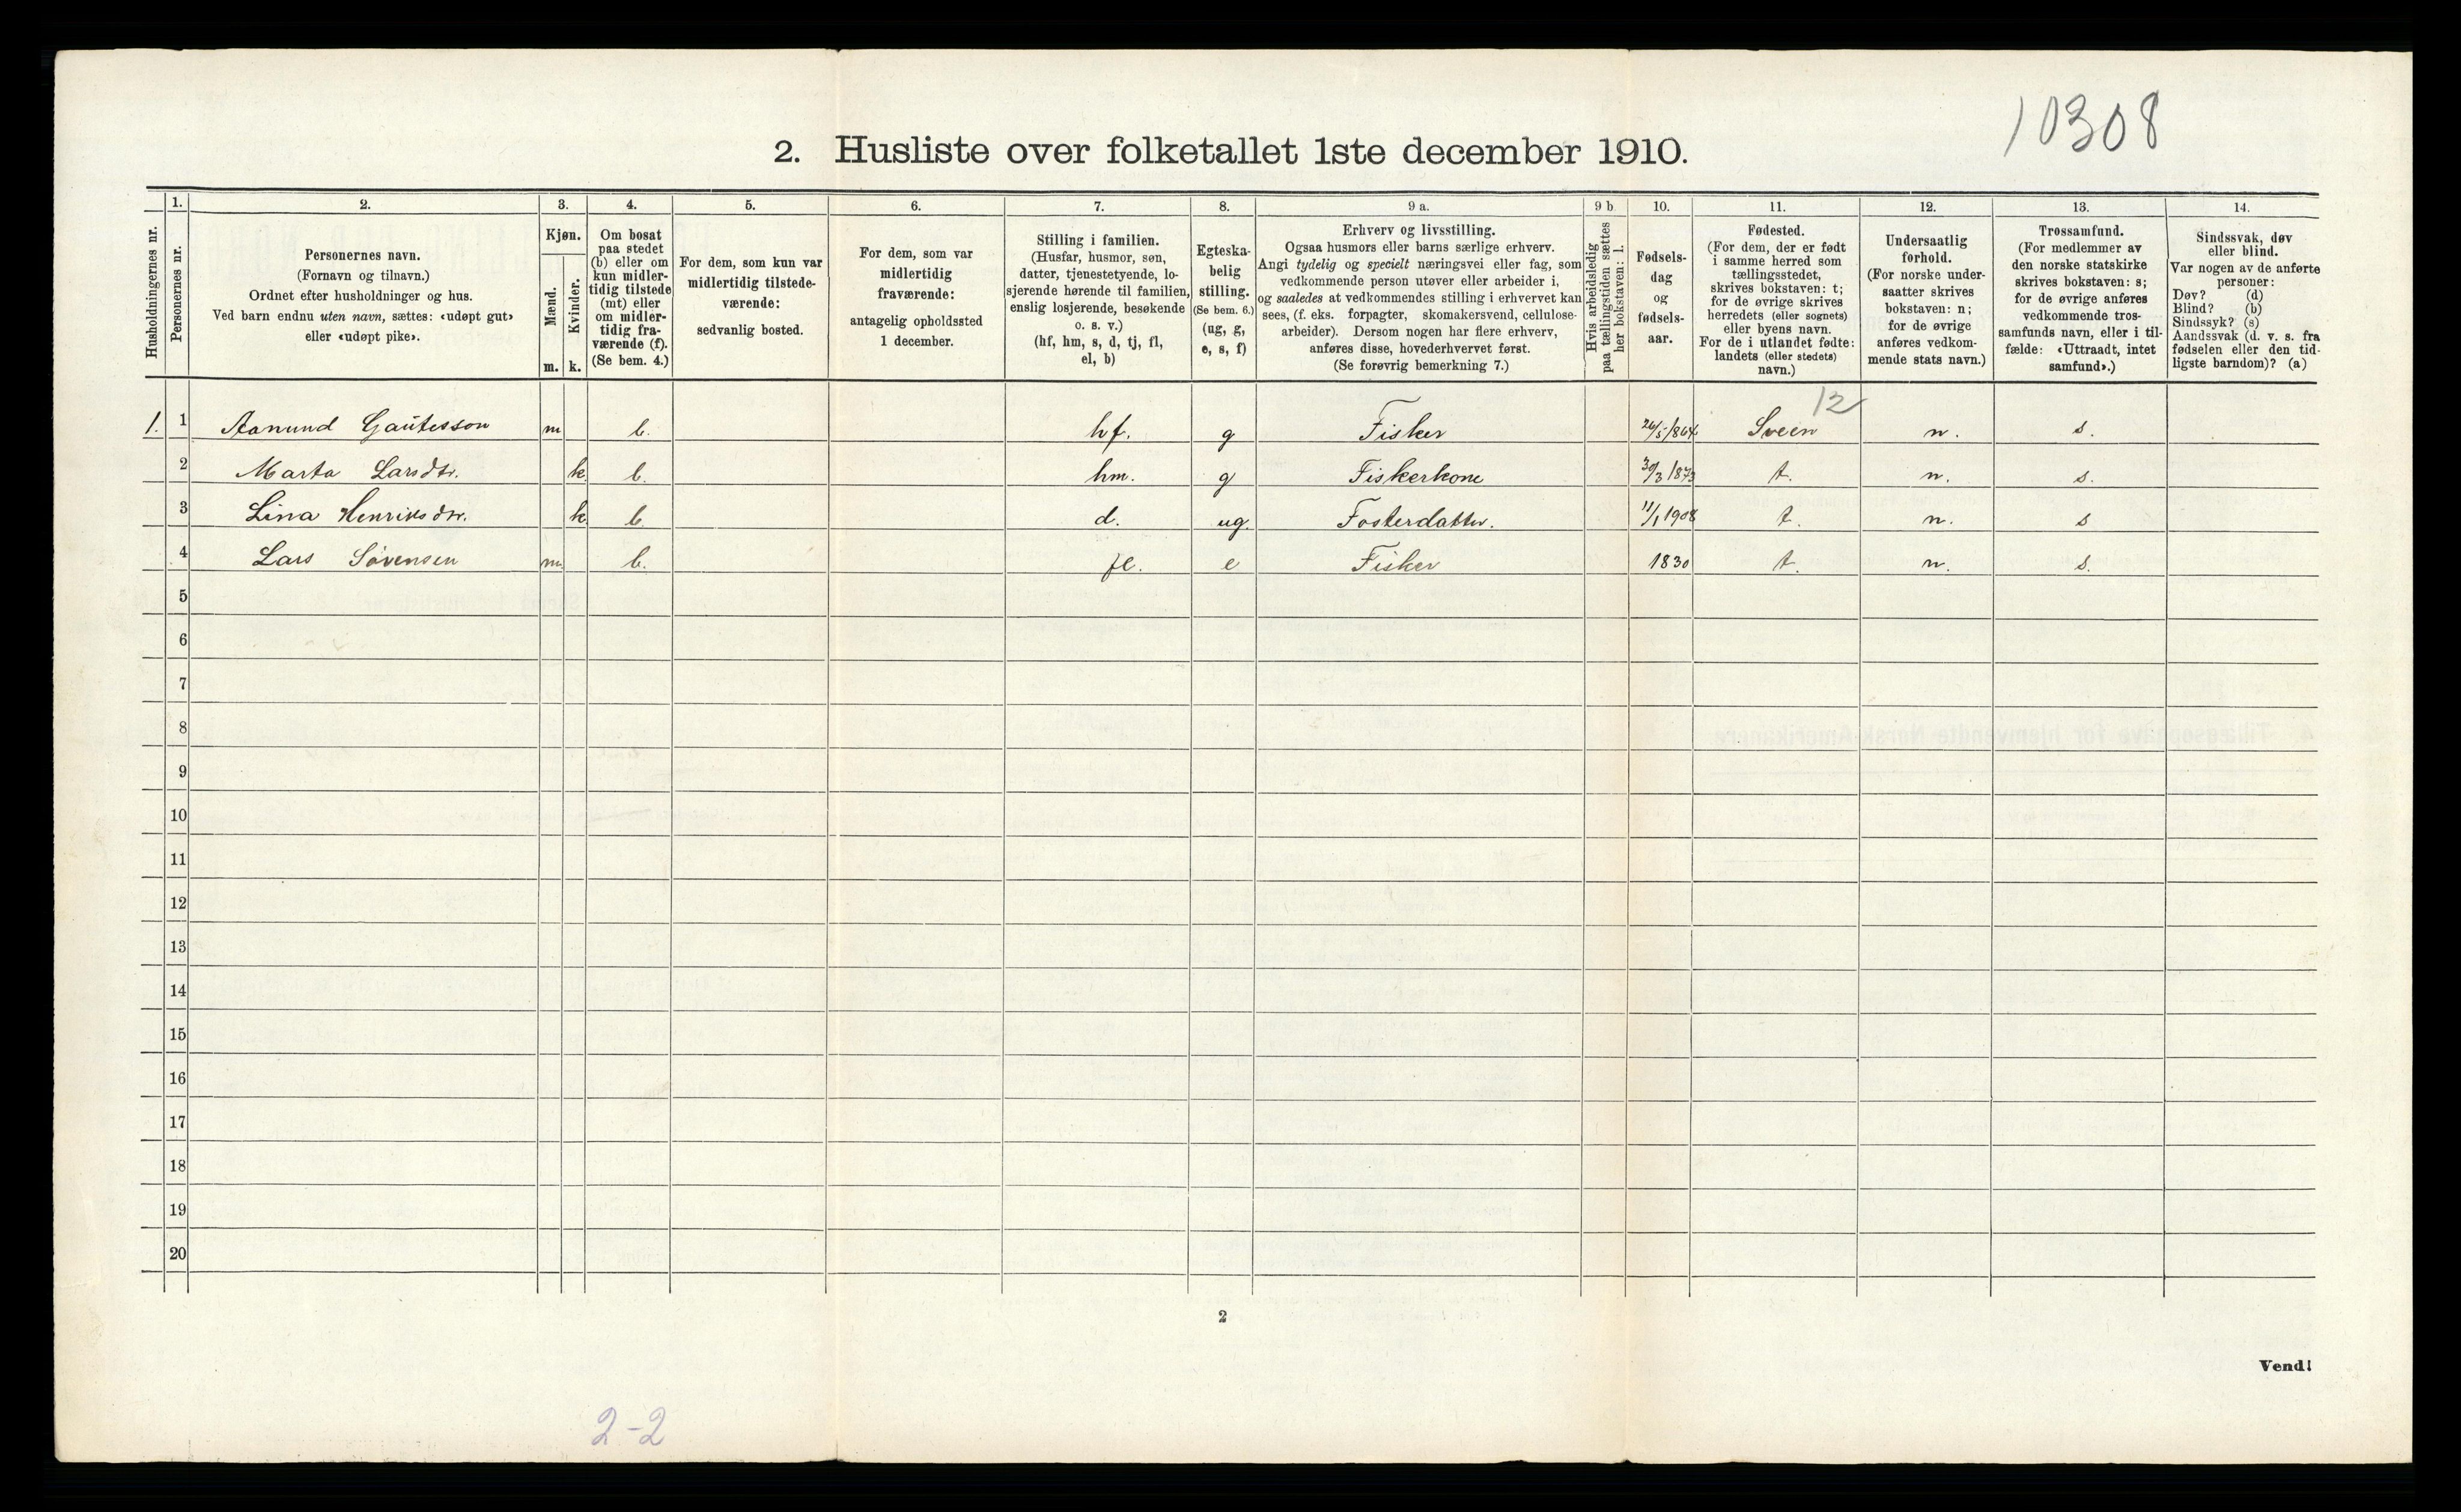 10308
2. Husliste over folketallet 1ste december 1910.
Husholdningernes nr.
1.
Personernes nr.
2.
Personernes navn.
(Fornavn og tilnavn.)
Ordnet efter husholdninger og hus.
Ved barn endnu uten navn, sættes: «udøpt gut»
eller «udøpt pike».
3.
Kjøn.
Mænd.
Kvinder.
m. k.
4.
Om bosat
paa stedet
(b) eller om
kun midler-
tidig tilstede
(mt) eller
om midler-
tidig fra-
værende (f).
(Se bem. 4.)
5.
For dem, som kun var
midlertidig tilstede-
værende:
sedvanlig bosted.
6.
For dem, som var
midlertidig
fraværende:
antagelig opholdssted
1 december.
7.
Stilling i familien.
(Husfar, husmor, søn,
datter, tjenestetyende, lo-
sjerende hørende til familien,
enslig losjerende, besøkende
o. s. v.)
(hf, hm, s, d, tj, fl,
el, b)
8.
Egteska-
belig
stilling.
(Se bem. 6.)
(ug, g,
e, s, f)
9 a.
Erhverv og livsstilling.
Ogsaa husmors eller barns særlige erhverv.
Angi tydelig og specielt næringsvei eller fag, som
vedkommende person utøver eller arbeider i,
og saaledes at vedkommendes stilling i erhvervet kan
sees, (f. eks. forpagter, skomakersvend, cellulose-
arbeider). Dersom nogen har flere erhverv,
anføres disse, hovederhvervet først.
(Se forøvrig bemerkning 7.)
9 b
Hvis arbeidsledig
paa tællingstiden sættes
her bokstaven: l.
10.
Fødsels-
dag
og
fødsels-
aar.
11.
Fødested.
(For dem, der er født
i samme herred som
tællingsstedet,
skrives bokstaven: t;
for de øvrige skrives
herredets (eller sognets)
eller byens navn.
For de i utlandet fødte:
landets (eller stedets)
navn.)
12.
Undersaatlig
forhold.
(For norske under-
saatter skrives
bokstaven: n;
for de øvrige
anføres vedkom-
mende stats navn.)
13.
Trossamfund.
(For medlemmer av
den norske statskirke
skrives bokstaven: s;
for de øvrige anføres
vedkommende tros-
samfunds navn, eller i til-
fælde: «Uttraadt, intet
samfund».)
14.
Sindssvak, døv
eller blind.
Var nogen av de anførte
personer:
Døv? (d)
Blind? (b)
Sindssyk? (s)
Aandssvak (d. v. s. fra
fødselen eller den tid-
ligste barndom)? (a)
12
1. 1 Aanund Gautesson m b. hf. g Fisker 26/5 1864 Sveen n. s.
2 Marta Larsdtr. k b. hm. g Fiskerkone 30/3 1873 t. n. s.
3 Lina Henriksdtr. k b. d. ug. Fosterdatter. 11/1 1908 t. n. s
4 Lars Sørensen m b. fl. e Fisker 1830 t. n. s.
5
6
7
8
9
10
11
12
13
14
15
16
17
18
19
20
2
Vend!
2-2